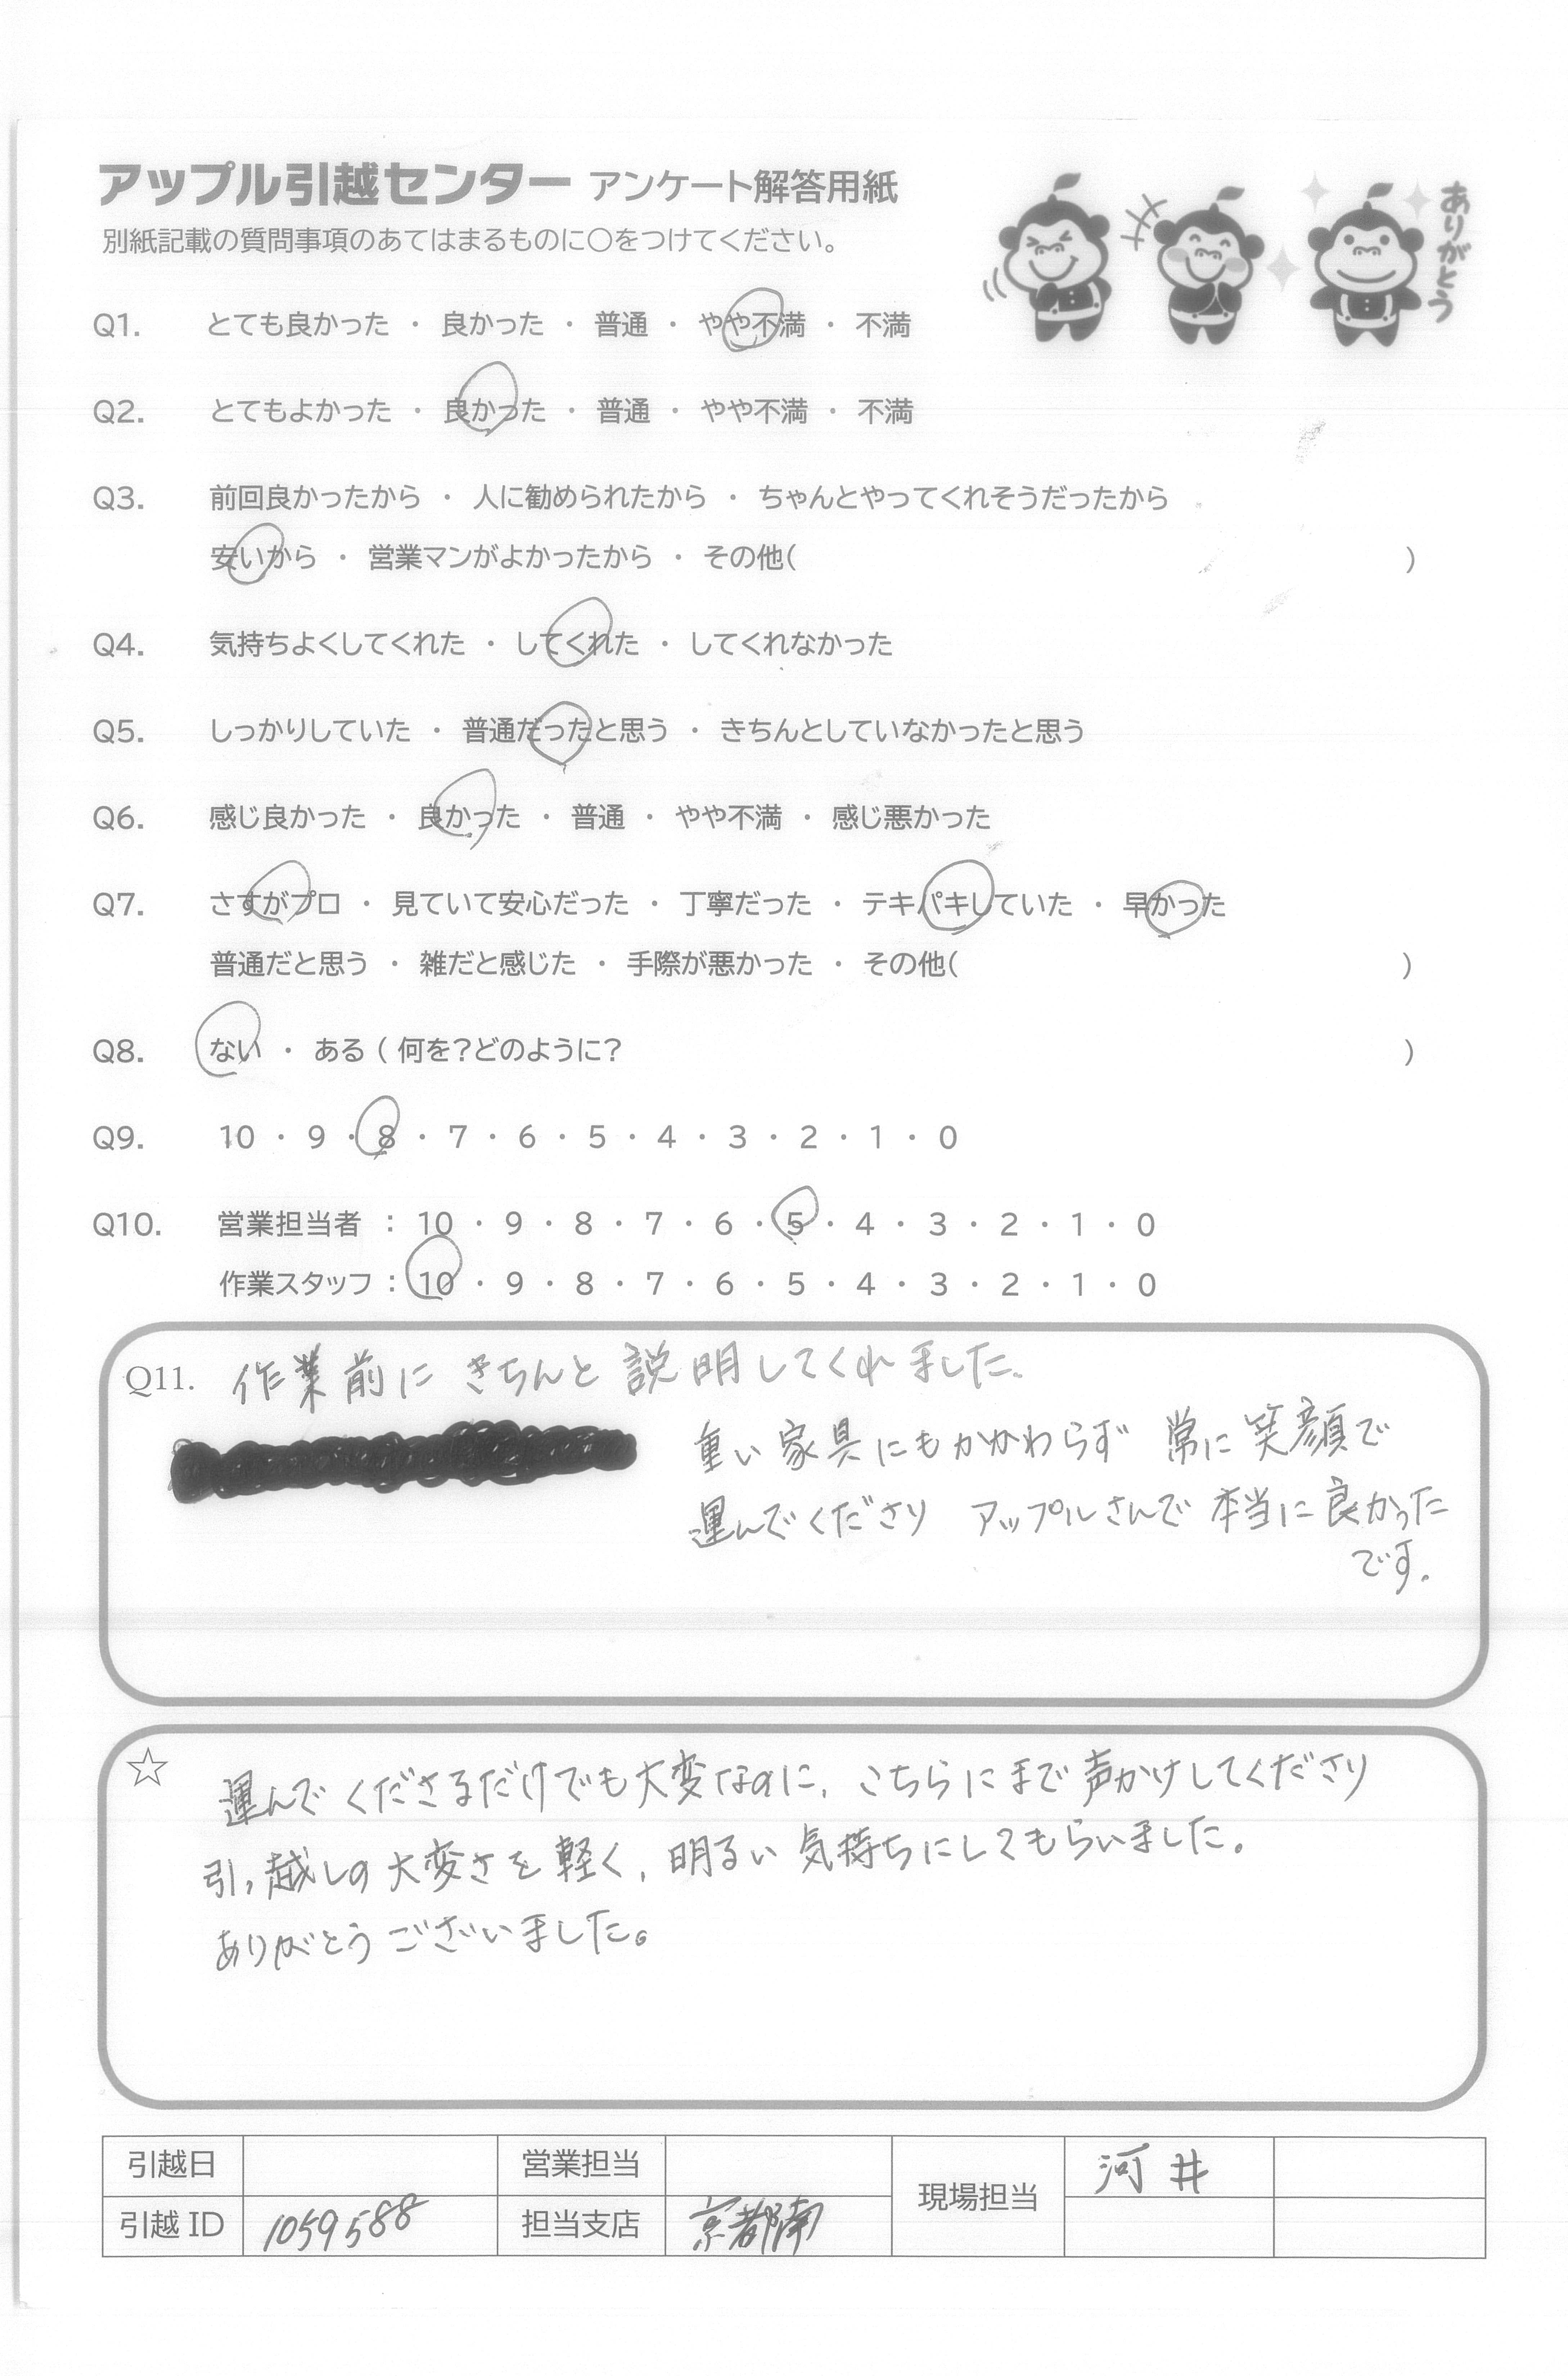 アップル引越センター アンケート解答用紙
ありがとう
別紙記載の質問事項のあてはまるものに○をつけてください。
Q1. とても良かった ・ 良かった ・ 普通 ・ やや不満 ・ 不満
Q2. とてもよかった ・ 良かった ・ 普通 ・ やや不満 ・ 不満
Q3. 前回良かったから ・ 人に勧められたから ・ ちゃんとやってくれそうだったから
安いから ・ 営業マンがよかったから ・ その他( )
Q4. 気持ちよくしてくれた ・ してくれた ・ してくれなかった
Q5. しっかりしていた ・ 普通だったと思う ・ きちんとしていなかったと思う
Q6. 感じ良かった ・ 良かった ・ 普通 ・ やや不満 ・ 感じ悪かった
Q7. さすがプロ ・ 見ていて安心だった ・ 丁寧だった ・ テキパキしていた ・ 早かった
普通だと思う ・ 雑だと感じた ・ 手際が悪かった ・ その他( )
Q8. ない ・ ある ( 何を?どのように? )
Q9. 10 ・ 9 ・ 8 ・ 7 ・ 6 ・ 5 ・ 4 ・ 3 ・ 2 ・ 1 ・ 0
Q10. 営業担当者 : 10 ・ 9 ・ 8 ・ 7 ・ 6 ・ 5 ・ 4 ・ 3 ・ 2 ・ 1 ・ 0
作業スタッフ : 10 ・ 9 ・ 8 ・ 7 ・ 6 ・ 5 ・ 4 ・ 3 ・ 2 ・ 1 ・ 0
Q11. 作業前に きちんと 説明してくれました。
重い家具にもかかわらず 常に笑顔で
運んでくださり アップルさんで 本当に良かった
です.
☆ 運んでくださるだけでも大変なのに、こちらにまで声かけしてくださり
引っ越しの大変さを軽く、明るい気持ちにしてもらいました。
ありがとうございました。
引越日 営業担当 現場担当 河井
引越 ID 1059588 担当支店 京都南